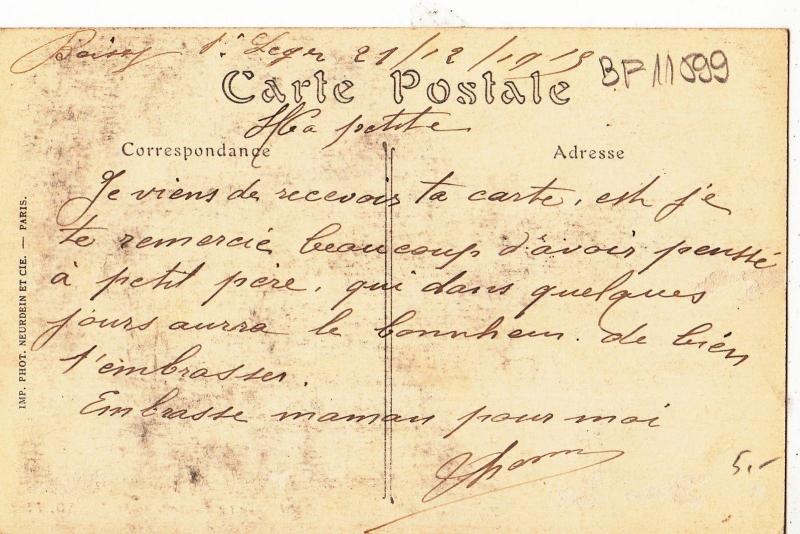 Boissy St Leger 21/12/1915
BF11099
Carte Postale
Ma petite
Correspondance
Adresse
Je viens de recevoir ta carte, est je
te remercie beaucoup d'avoir penssé
à petit père, qui dans quelques
jours aurra le bonnheur de bien
t'embrasser.
Embrasse maman pour moi
5.-
IMP. PHOT. NEURDEIN ET CIE. — PARIS.